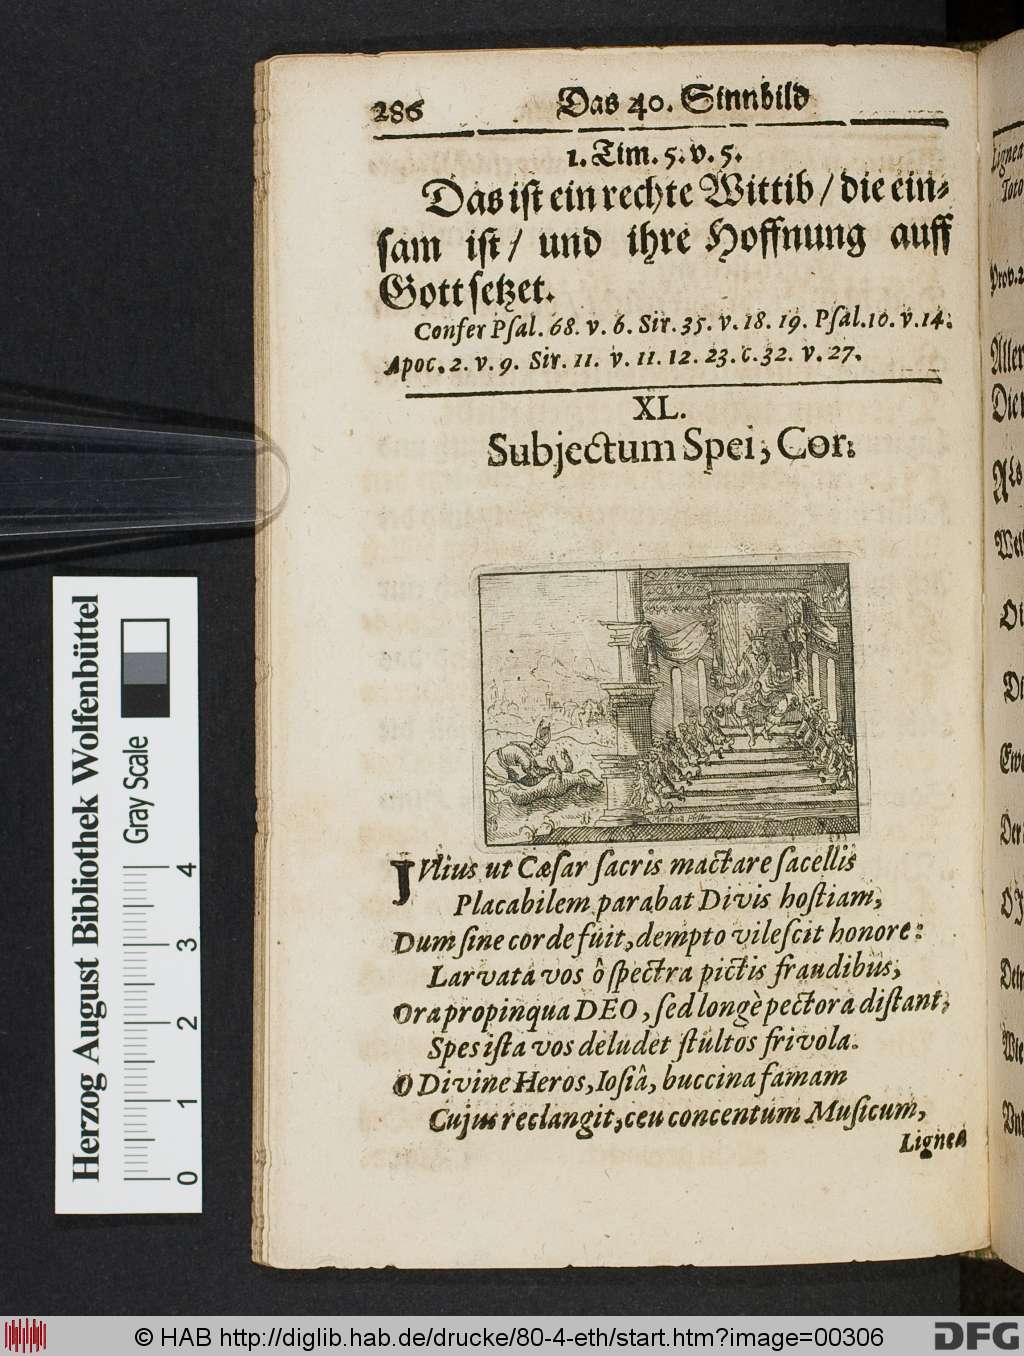 286 Das 40. Sinnbild
1. Tim. 5. v. 5.
Das ist ein rechte Wittib / die ein-
sam ist / und ihre Hoffnung auff
Gott setzet.
Confer Psal. 68. v. 6. Sir. 35. v. 18. 19. Psal. 10. v. 14.
Apoc. 2. v. 9. Sir. 11. v. 11. 12. 23. c. 32. v. 27.
XL.
Subjectum Spei, Cor.
JVlius ut Cæsar sacris mactare sacellis
Placabilem parabat Divis hostiam,
Dum sine corde fuit, dempto vilescit honore:
Larvata vos ô spectra pictis fraudibus,
Ora propinqua DEO, sed longè pectora distant,
Spes ista vos deludet stultos frivola.
O Divine Heros, Iosiâ, buccina famam
Cujus reclangit, ceu concentum Musicum,
Lignea
Lignea
Toto
Prov. 2
Aller
Als
Herzog August Bibliothek Wolfenbüttel
Gray Scale
0 1 2 3 4
© HAB http://diglib.hab.de/drucke/80-4-eth/start.htm?image=00306
DFG